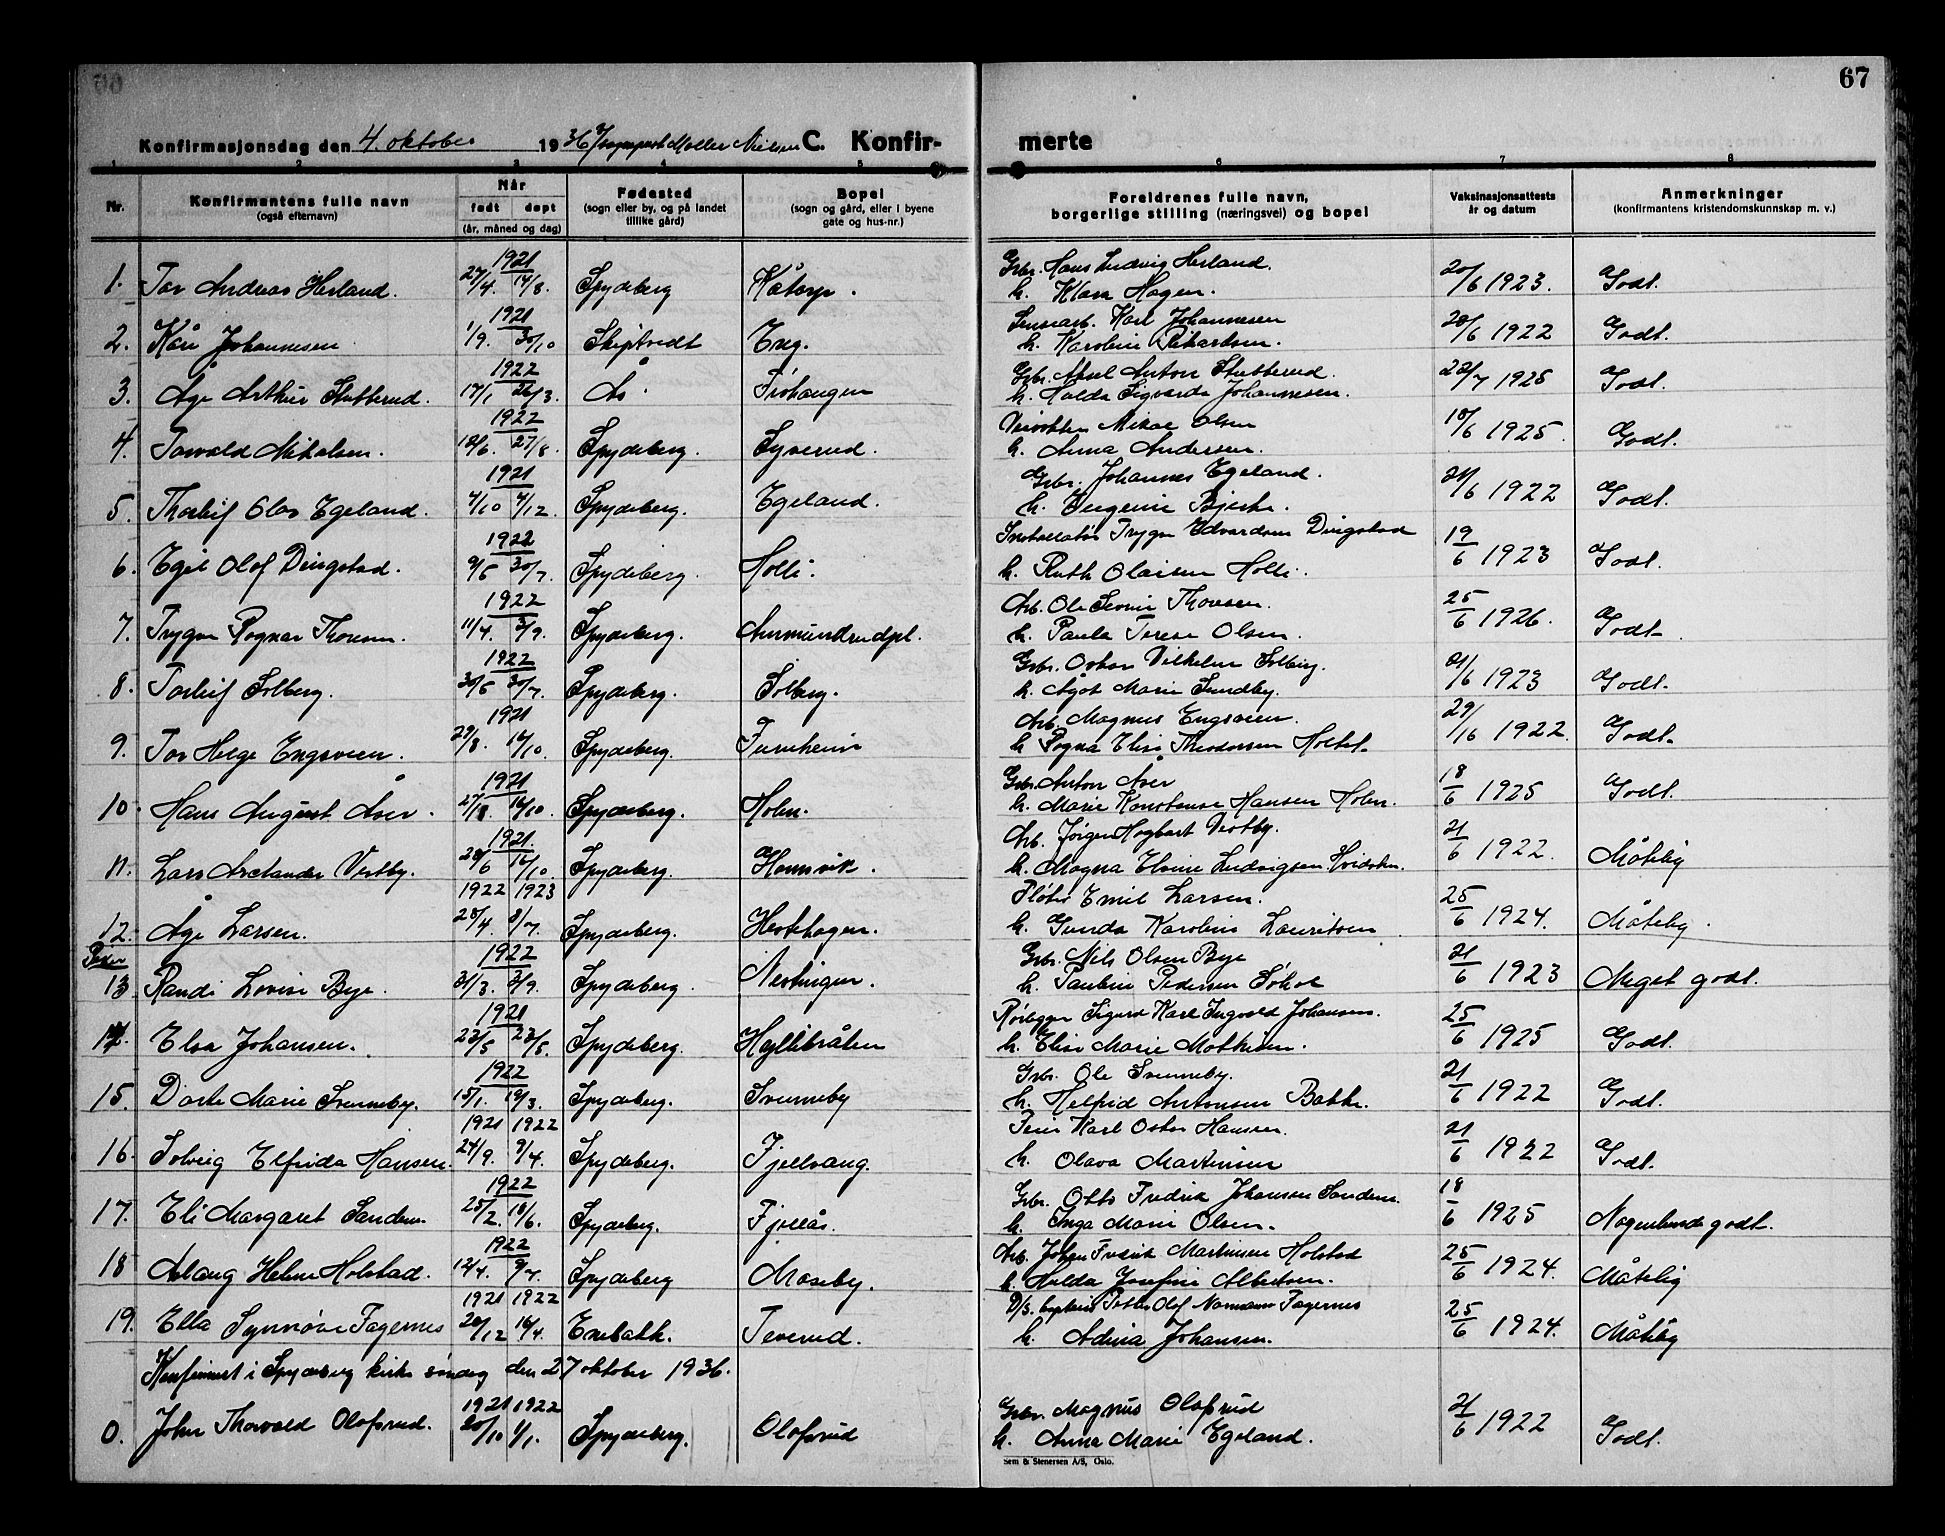 67
Konfirmasjonsdag den 4. oktober 1936 C. Konfir-
merte
1 2 3 4 5 6 7 8
Nr.
Konfirmantens fulle navn
(også efternavn)
Når
født døpt
(år, måned og dag)
Fødested
(sogn eller by, og på landet
tillike gård)
Bopel
(sogn og gård, eller i byene
gate og hus-nr.)
Foreldrenes fulle navn,
borgerlige stilling (næringsvei) og bopel
Vaksinasjonsattests
år og datum
Anmerkninger
(konfirmantens kristendomskunnskap m. v.)
1921 Gbr. Hans Ludvig Herland.
1. Tor Andreas Herland. 27/4. 14/8. Spydeberg Kåtorp. h. Klara Hagen. 20/6 1923. Godt.
1921 Karl Johannesen
2. Kåre Johannesen 1/9. 30/10 Skiptvedt Eng. h. Karoline Rikardsen. 28/6 1922 Godt.
1922 Gbr. Aksel Anton Stubberud.
3. Åge Arthur Stubberud. 17/1 26/3. Ås Frohaugen h. Halda Sigvarda Johannesen. 22/7 1925 Godt.
1922 Mikal Olsen
4. Torvald Mikalsen. 12/6. 27/8. Spydeberg. Syverud. h. Anna Andersen. 18/6 1925. Godt.
1921 Gbr. Johannes Egeland.
5. Thorleif Olav Egeland. 4/10 4/12. Spydeberg. Egeland. h. Eugenie Bjerke. 21/6 1922 Godt.
1922 Installatør Trygve Edvardsen Dingstad
6. Egil Olof Dingstad. 9/5 30/7. Spydeberg. Holli. h. Ruth Olaisen Holli. 19/6 1923 Godt.
1922 Arb. Ole Thoresen.
7. Trygve Ragnar Thoresen. 11/4. 3/9. Spydeberg. Aamundrudpl. h. Paula Terese Olsen. 25/6 1926. Godt.
1922 Gbr. Oskar Vilhelm Solberg.
8. Torleif Solberg. 30/5 30/7. Spydeberg. Solberg. h. Ågot Marie Sundby. 21/6 1923 Godt.
1921 Arb. Magnus Engsveen.
9. Tor Helge Engsveen. 29/8. 16/10. Spydeberg. Furuheim h. Ragna Elise Theodorsen Holtet. 29/16 1922. Godt.
1921 Gbr. Anton Åser
10. Hans August Åser. 27/8. 16/10. Spydeberg. Holm. h. Marie Konstanse Hansen Holm. 18/6 1925 Godt.
1921. Arb. Jørgen Hagbart Vestby.
11. Lars Vestby. 28/6 16/10. Spydeberg. Hamvik. h. Magna Elvine Ludvigsen Hvidsten. 21/6 1922. Måtelig
1922 1923 Fløter Emil Larsen.
12. Åge Larsen. 28/4. 8/7. Spydeberg. Hestehagen. h. Gunda Karoline Lauritsen 25/6 1924. Måtelig.
Piker 1922 Gbr. Nils Olsen Bye
13 Randi Lovise Bye. 31/3. 3/9. Spydeberg. Nestingen. h. Pauline Pedersen Søhol 21/6 1923 Meget godt.
1921 Rørlegger Sigurd Karl Ingvald Johansen.
14. Elsa Johansen. 23/5 23/8. Spydeberg. Hyllibråten h. Elise Marie Mathisen. 25/6 1925 Godt.
1922 Gbr. Ole Svenneby.
15. Dorte Marie Svenneby. 15/1. 19/3. Spydeberg. Svenneby h. Helfrid Antonsen Bakke. 21/6 1922 Godt.
1921 1922 Karl Oskar Hansen.
16. Solveig Elfrida Hansen. 24/9. 9/4. Spydeberg. Fjellvang. h. Olava Martinsen 21/6 1922 Godt.
1922 Gbr. Otto Fredrik Johansen Sandem.
17. Eli Margaret Sandem. 25/2. 18/6. Spydeberg. Fjellås. h. Inga Marie Olsen. 18/6 1925 Nogenlunde godt.
1922 Arb. Johan Fredrik Martinsen Holstad
18 Aslaug Helene Holstad. 12/4. 9/7. Spydeberg Moseby. h. Hulda Josefine Albertsen. 25/6 1924. Måtelig
1921 1922 Olof Normann Fagernes
19. Ella Synnøve Fagernes 20/12 16/4. Enebakk. Teverud. h. Adina Johansen. 25/6 1924. Måtelig
Konfirmert i Spydeberg kirke søndag den 27 oktober 1936.
1921 1922 Gbr. Magnus Olafsrud
0. John Thorvald Olafsrud. 20/10 1/1. Spydeberg. Olafsrud h. Anna Marie Egeland. 21/6 1922 Godt.
Sem & Stenersen A/S, Oslo.